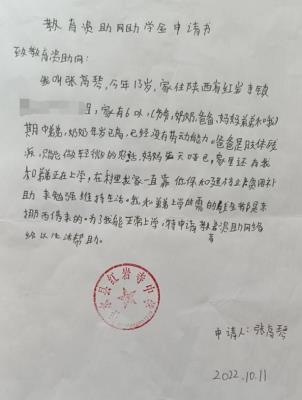 教育资助网助学金申请书
致教育资助网:
我叫张高琴,今年13岁,家住陕西省红岩寺镇
组,家有6口人(爷爷,奶奶,爸爸,妈妈弟弟和我)
期中爷爷,奶奶年岁已高,已经没有劳动能力。爸爸是肢体残
疾,只能做轻微的
妈妈
家里还有我
和弟弟在上学,
家一直靠低保和残疾人
补
助来勉强维持生活。我和弟弟上学所需的
都是东
挪西借来的。为了我能正常上学,特申请教育资助网络
给以生活帮助。
县红岩寺中学
申请人:张高琴
2022.10.11